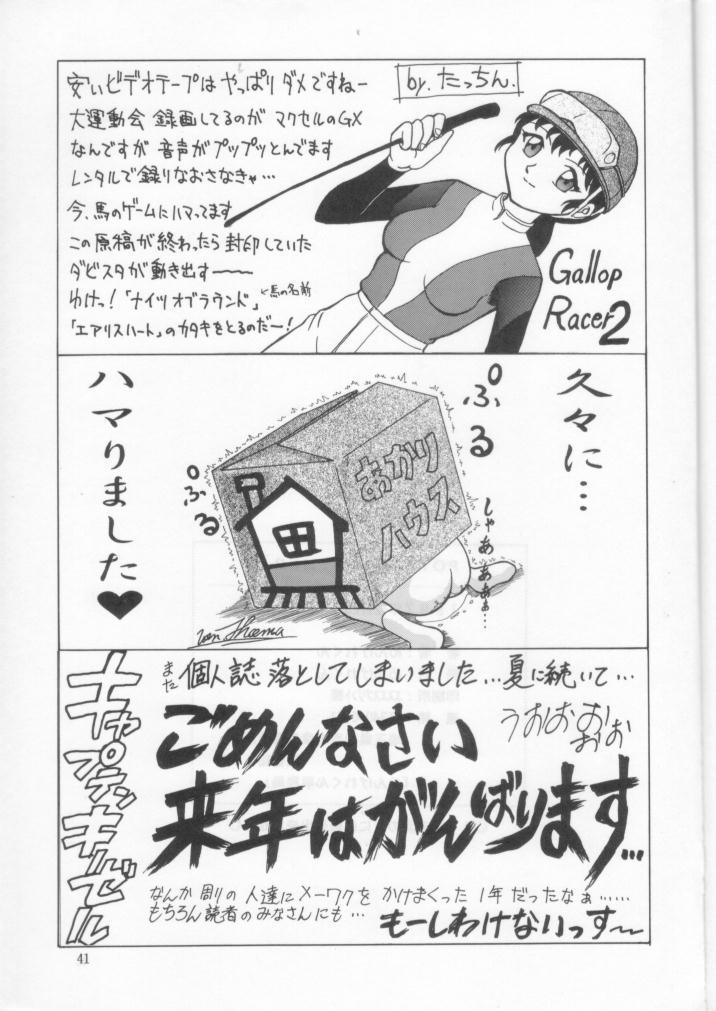 安いビデオテープは やっぱり ダメですねー
大運動会 録画してるのが マクセルのGX
なんですが 音声がプップッとんでます
レンタルで録りなおさなきゃ…
今、馬のゲームにハマってます
この原稿が終わったら封印していた
ダビスタが動き出す〜〜〜
ゆけっ!「ナイツオブラウンド」
と馬の名前
「エアリスハート」のカタキをとるのだー!
by.たっちん.
Gallop
Racer2
久々に…
ハマりました♥
ぷる
ぷる
あかり
ハウス
しゃあぁぁぁ…
また 個人誌 落としてしまいました…夏に続いて…
ごめんなさい
うおおお
おお
来年はがんばります…
キャプテンキルゼル
なんか 周りの 人達に メーワクを かけまくった 1年だったなぁ……
もちろん読者のみなさんにも…
もーしわけないっす〜
41